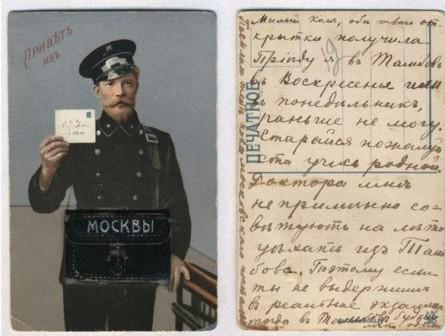 Привѣтъ
изъ
МОСКВЫ
Милый Коля, обѣ твои от-
крытки получила
Пріѣду я въ Тамбовъ
въ Воскресенье или
въ понедѣльникъ,
раньше не могу.
Старайся пожалуй
ста учись родной.
Доктора мнѣ
не премѣнно со-
вѣтуютъ на лѣто
уѣхать изъ Там
бова. Поэтому если
ты не выдержишь
въ реальное экзамена
тогда въ Тамбовѣ
ПЕЧАТНОЕ